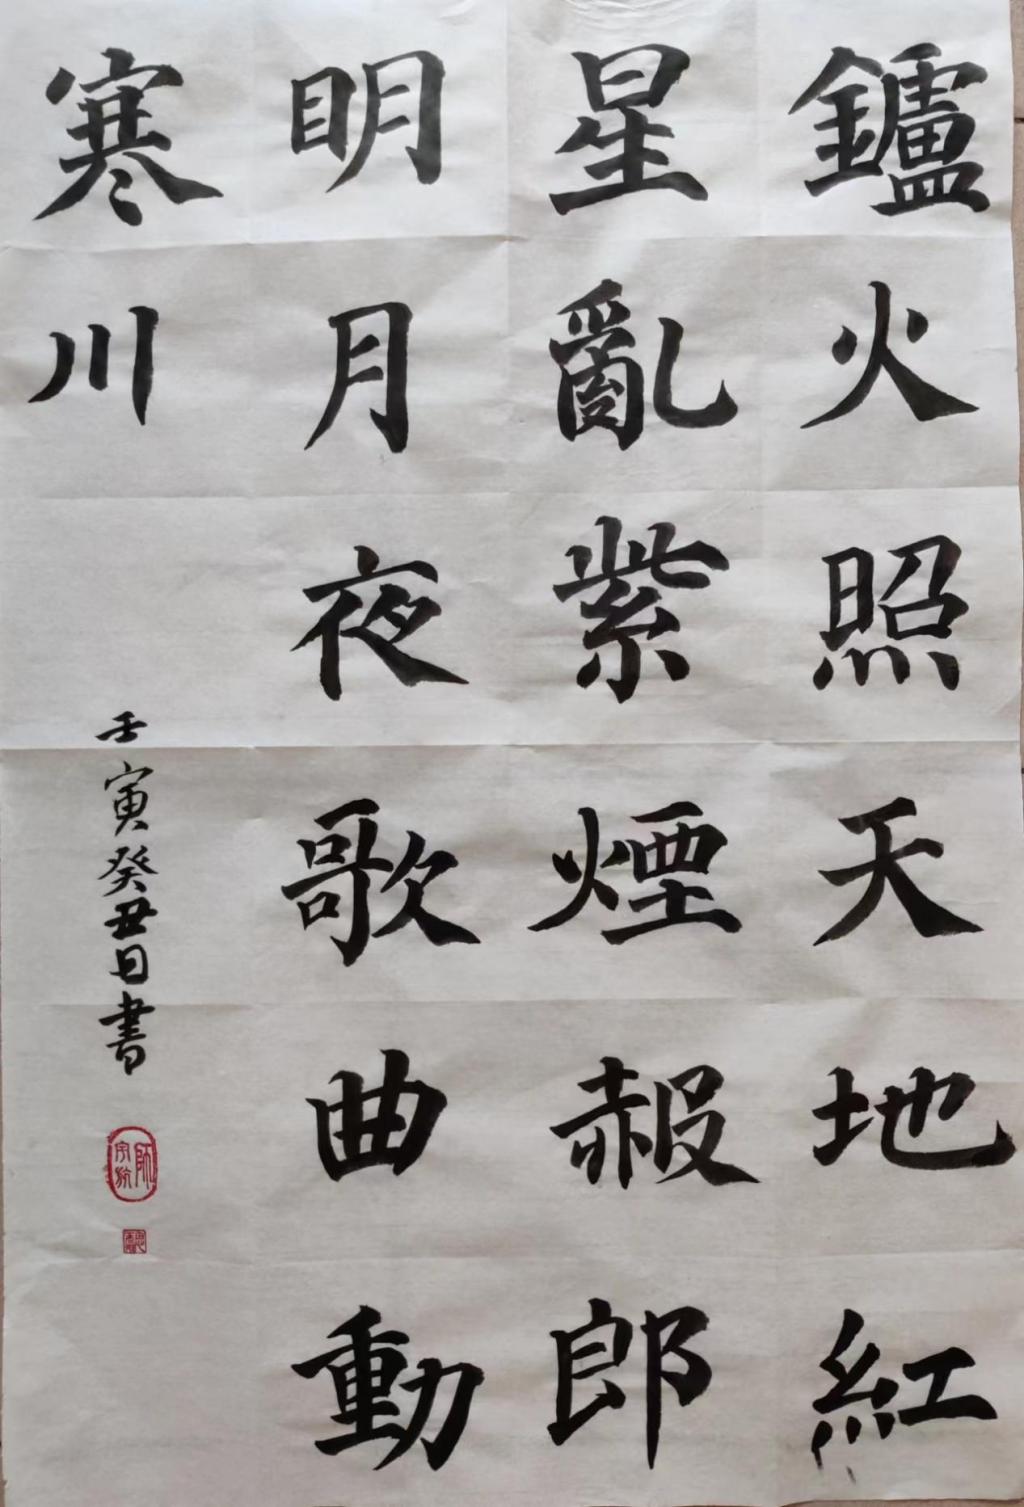 鑪火照天地紅
星亂紫煙赧郎
明月夜歌曲動
寒川
壬寅癸丑日書